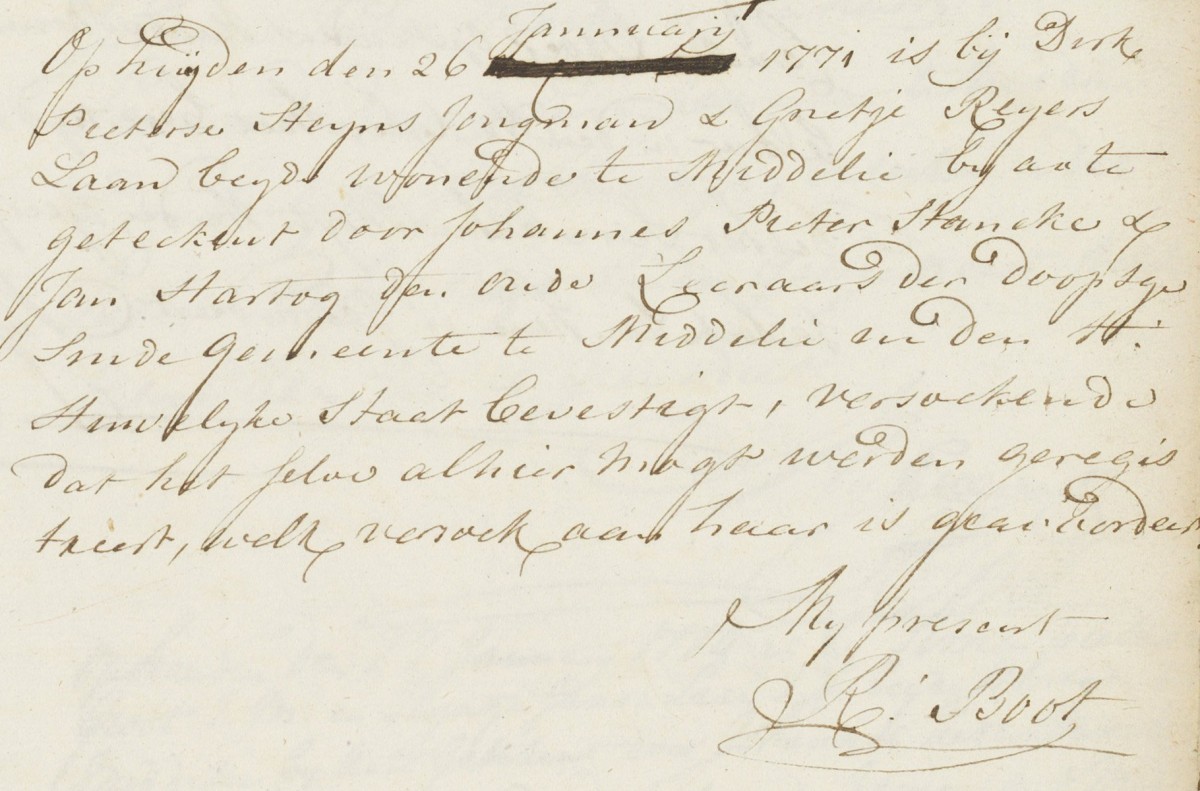 Januarij
Op huijden den 26 1771 is bij Dirk
Pieterse Steyns Jongman & Grietje Reyers
Laan beyde wonende te Middelie by acte
geteekent door Johannes Pieter Stancke &
Jan Hartog den oude Leeraars der doopsge
sinde Gemeente te Middelie in den H:
Huwelyke Staat bevestigt, versoekende
dat het selve alhier mogt werden geregis
treert, welk versoek aan haar is geaccordeert
My present
R: Boot